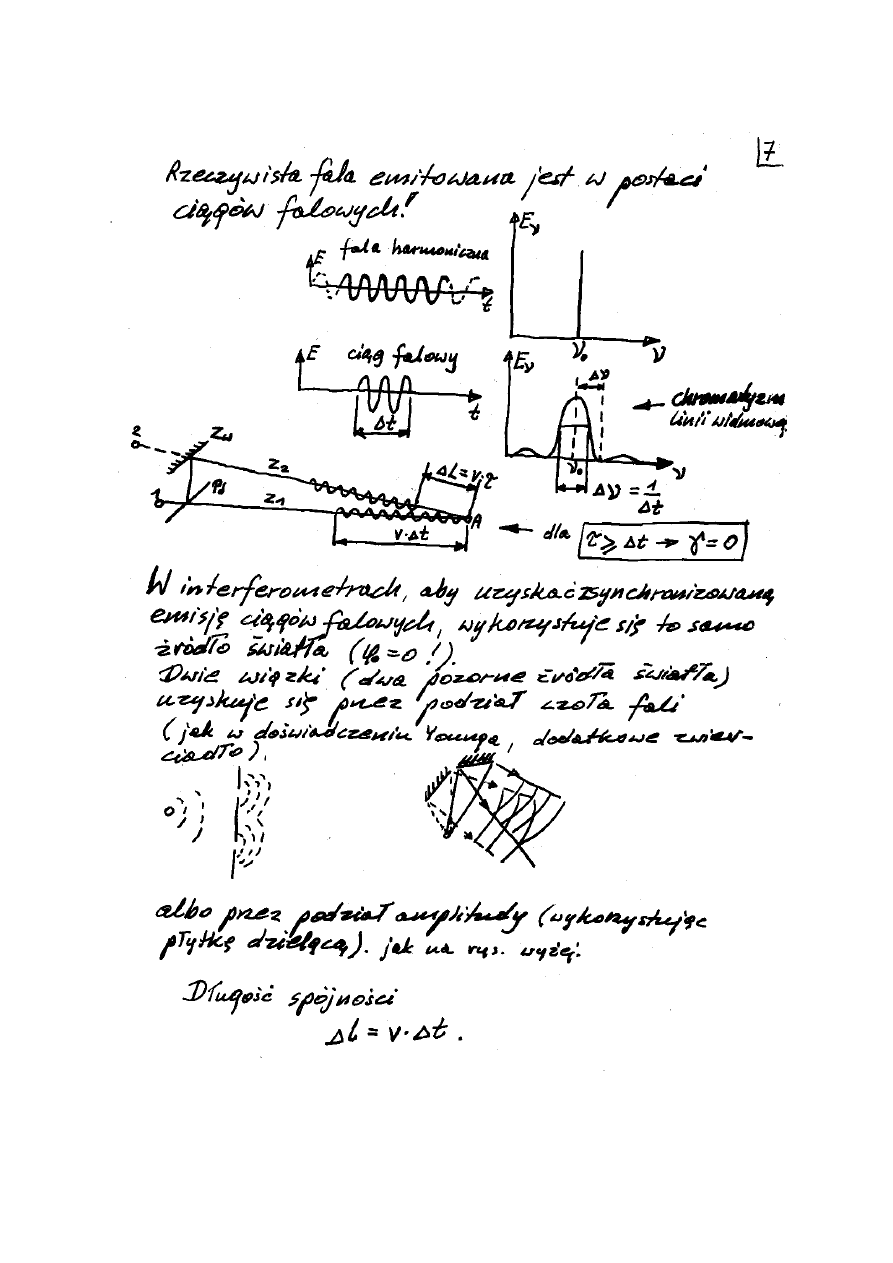 7
Rzeczywista fala emitowana jest w postaci
ciągów falowych!
E fala harmoniczna
t
Eν
ν₀ ν
E ciąg falowy
t
Δt
Eν
Δν
ν₀ ν
Δν = 1/Δt
chromatyzm
linii widmową
2 Zw
z₂
ΔL = v·τ
1 Pd
z₁
A
v·Δt
dla τ ⩾ Δt → γ = 0
W interferometrach, aby uzyskać zsynchronizowaną
emisję ciągów falowych, wykorzystuje się to samo
źródło światła (φ₀=0 !).
Dwie wiązki (dwa pozorne źródła światła)
uzyskuje się przez podział czoła fali
(jak w doświadczeniu Younga, dodatkowe zwier-
ciadło).
albo przez podział amplitudy (wykorzystując
płytkę dzielącą). jak na rys. wyżej.
Długość spójności
ΔL = v·Δt .